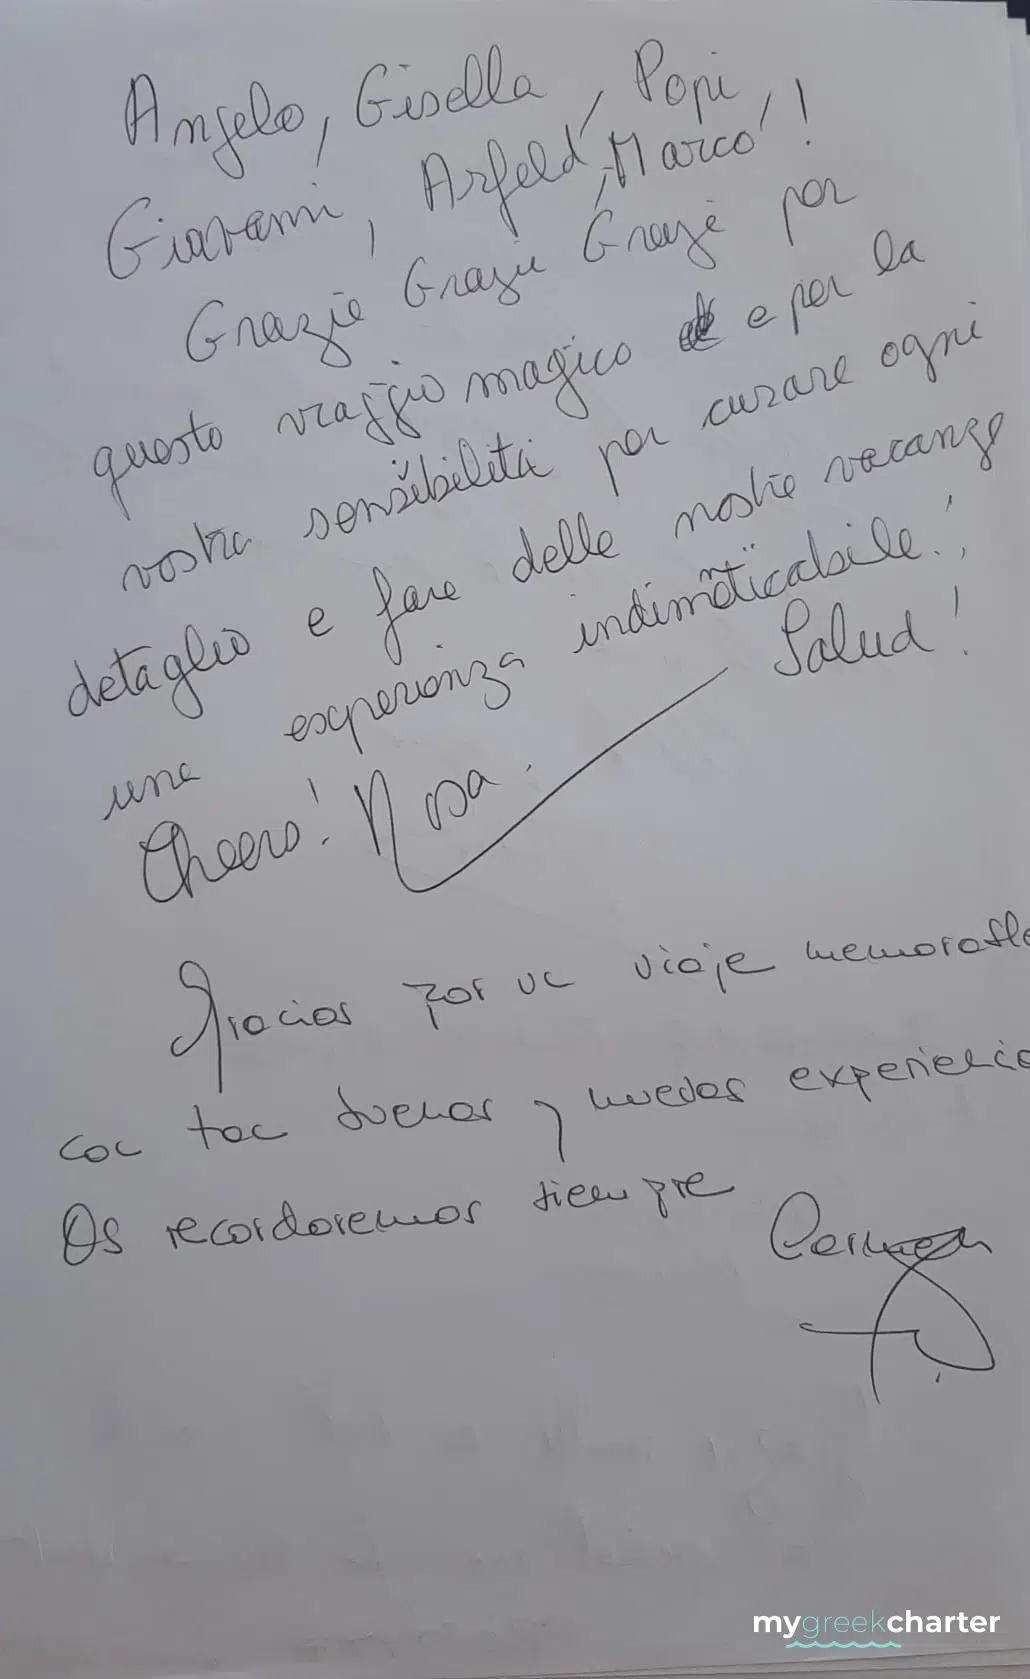 Angelo, Gisella, Popi,
Giovanni, Arfeld, Marco!
Grazie Grazie Grazie per
questo viaggio magico e per la
vostra sensibilità per curare ogni
detaglio e fare delle nostre vacanze
una experienza indimēticabile!
Cheers! Rosa. Salud!
Gracias por un viaje memorable
con tan buenas y nuevas experiencia
Os recordaremos siempre
Carmen
mygreekcharter